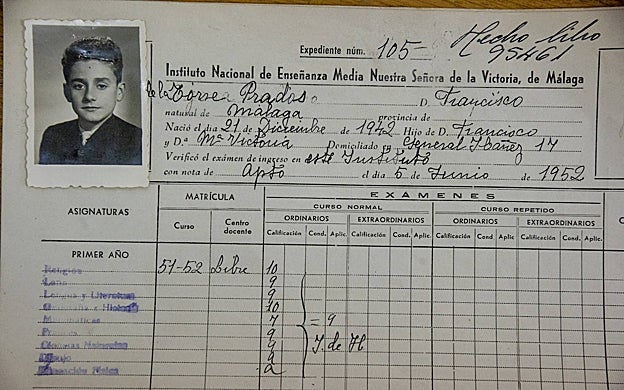 Expediente núm. 105-
Hecho libro
95461
Instituto Nacional de Enseñanza Media Nuestra Señora de la Victoria, de Málaga
de la Torre Prados D. Francisco
natural de Málaga provincia de
Nació el día 21 de Diciembre de 1942 Hijo de D. Francisco
y D.ª Mª Victoria Domiciliado en General Ibáñez 17
Verificó el exámen de ingreso en este Instituto
con nota de Apto el día 5 de Junio de 1952
ASIGNATURAS MATRÍCULA EXÁMENES
CURSO NORMAL CURSO REPETIDO
Curso Centro docente ORDINARIOS EXTRAORDINARIOS ORDINARIOS EXTRAORDINARIOS
Calificación Cond. Aplic. Calificación Cond. Aplic. Calificación Cond. Aplic. Calificación Cond. Aplic.
PRIMER AÑO
Religión 51-52 Libre 10
9
Lengua y Literatura 9
10
Matemáticas 7 = 9
9
9 I. de H
9
a